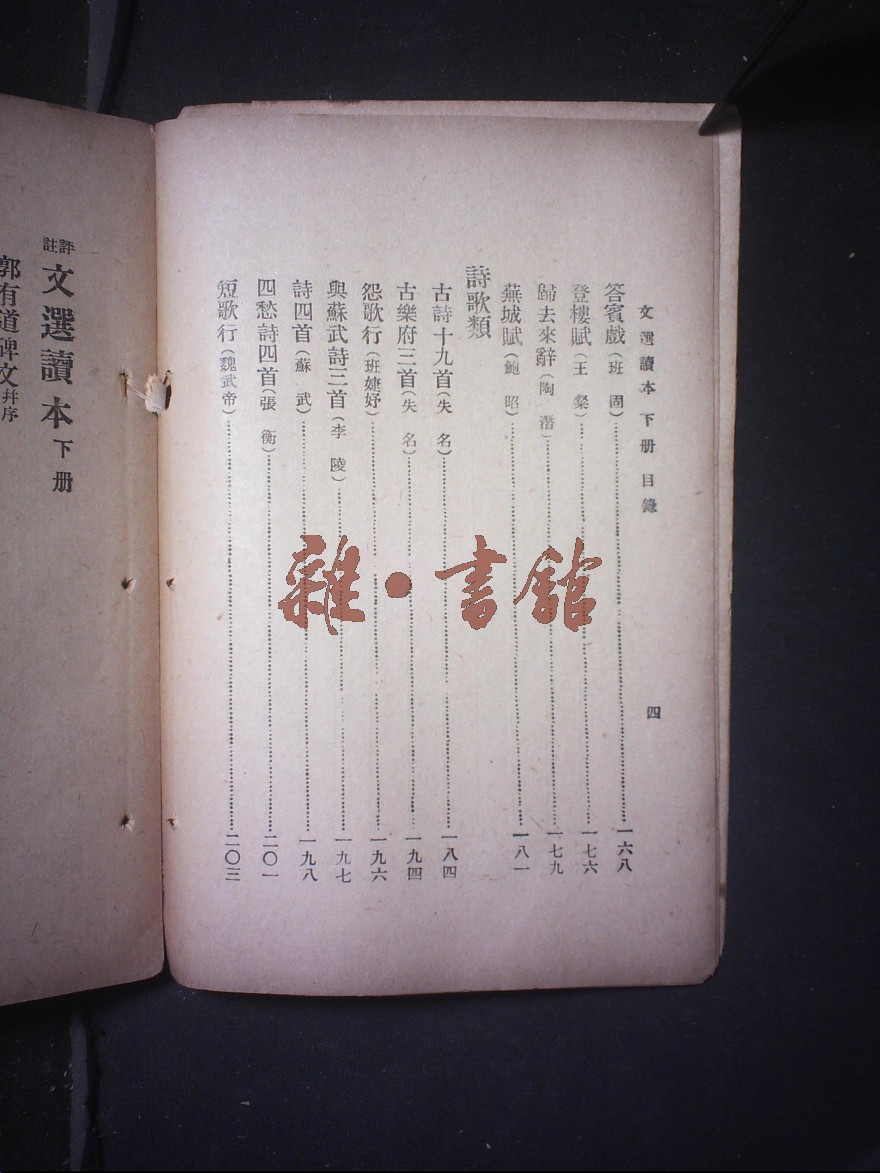 文選讀本 下册 目錄 四
答賓戲(班固)……一六八
登樓賦(王粲)……一七六
歸去來辭(陶潛)……一七九
蕪城賦(鮑昭)……一八一
詩歌類
古詩十九首(失名)……一八四
古樂府三首(失名)……一九四
怨歌行(班婕妤)……一九六
與蘇武詩三首(李陵)……一九七
詩四首(蘇武)……一九八
四愁詩四首(張衡)……二〇一
短歌行(魏武帝)……二〇三
評註 文選讀本 下册
郭有道碑文幷序
雜·書館